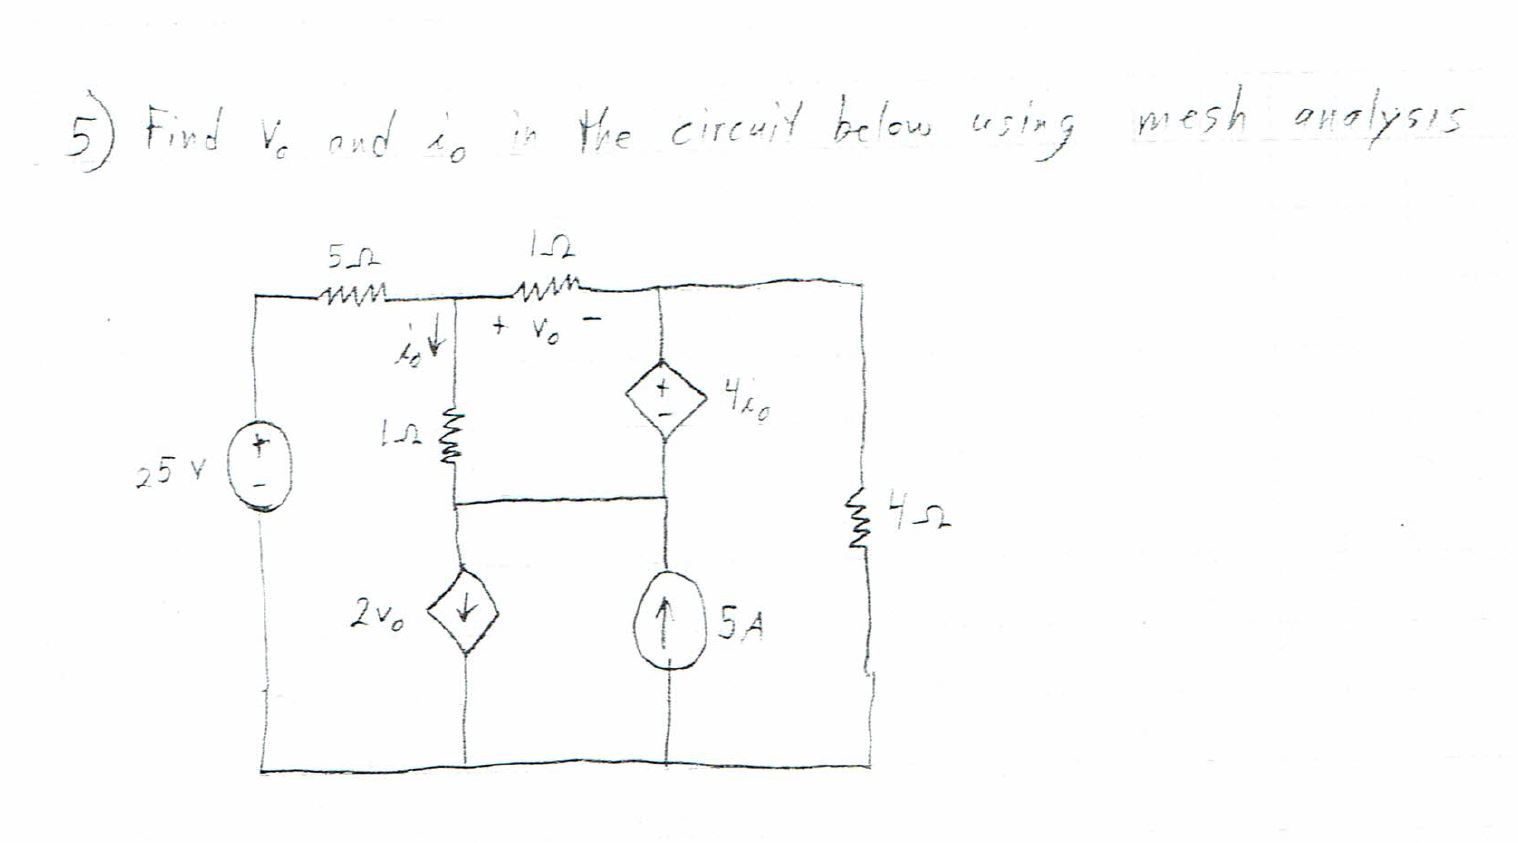 5) Find v₀ and i₀ in the circuit below using mesh analysis
5Ω
1Ω
i₀
+ v₀ -
1Ω
+
-
4i₀
25 V
+
-
4Ω
2v₀
5A